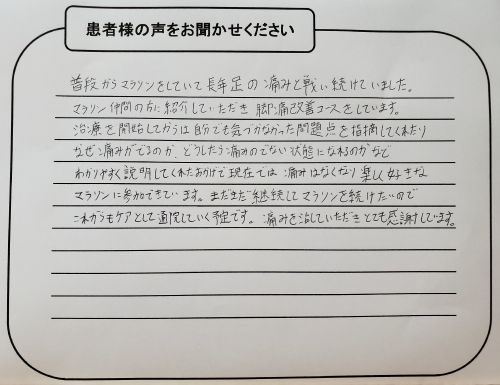 患者様の声をお聞かせください
普段からマラソンをしていて長年足の痛みと戦い続けていました。
マラソン仲間の方に紹介していただき 脚痛改善コースをしています。
治療を開始してからは自分でも気づかなかった問題点を指摘してくれたり
なぜ痛みがでるのか、どうしたら痛みのでない状態になれるのかなど
わかりやすく説明してくれたおかげで現在では 痛みはなくなり 楽しく好きな
マラソンに参加できています。まだまだ継続してマラソンを続けたいので
これからもケアとして通院していく予定です。痛みを治していただきとても感謝しています。